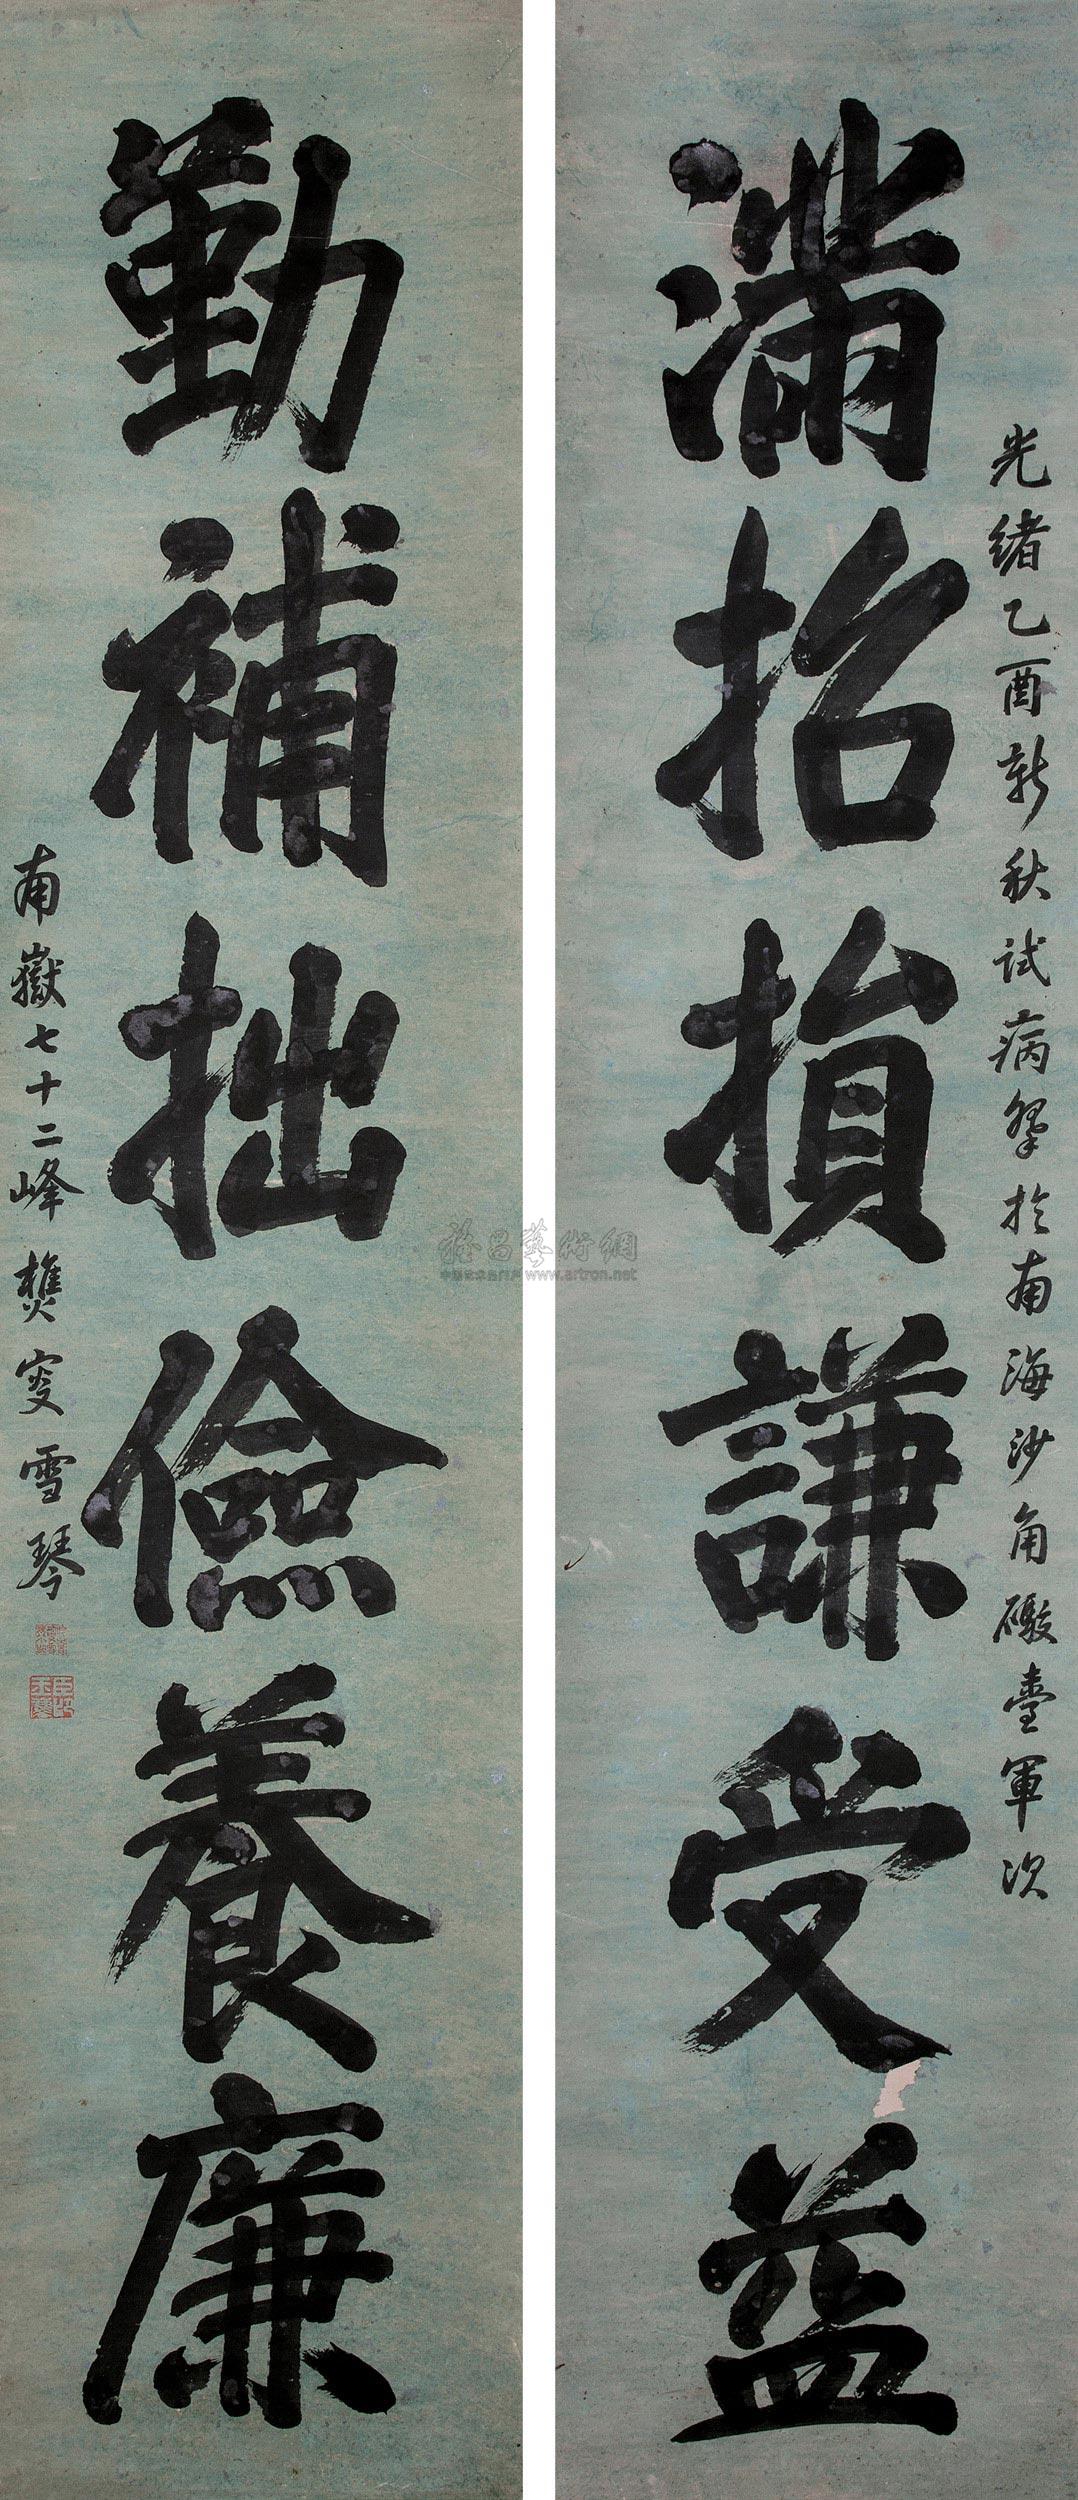 光緒乙酉新秋試病挐於南海沙角礮臺軍次
滿招損謙受益
勤補拙儉養廉
南嶽七十二峰樵叟雪琴
雅昌藝術網
www.artron.net